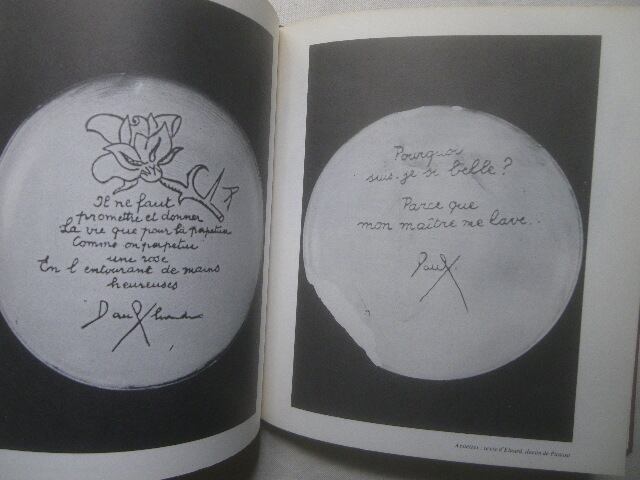 Il ne faut
promettre et donner
La vie que pour la perpétuer
Comme on perpétue
une rose
En l'entourant de mains
heureuses
Paul Eluard
Pourquoi
suis-je si belle?
Parce que
mon maître me lave..
Paul
Assiettes : texte d'Eluard, dessin de Picasso